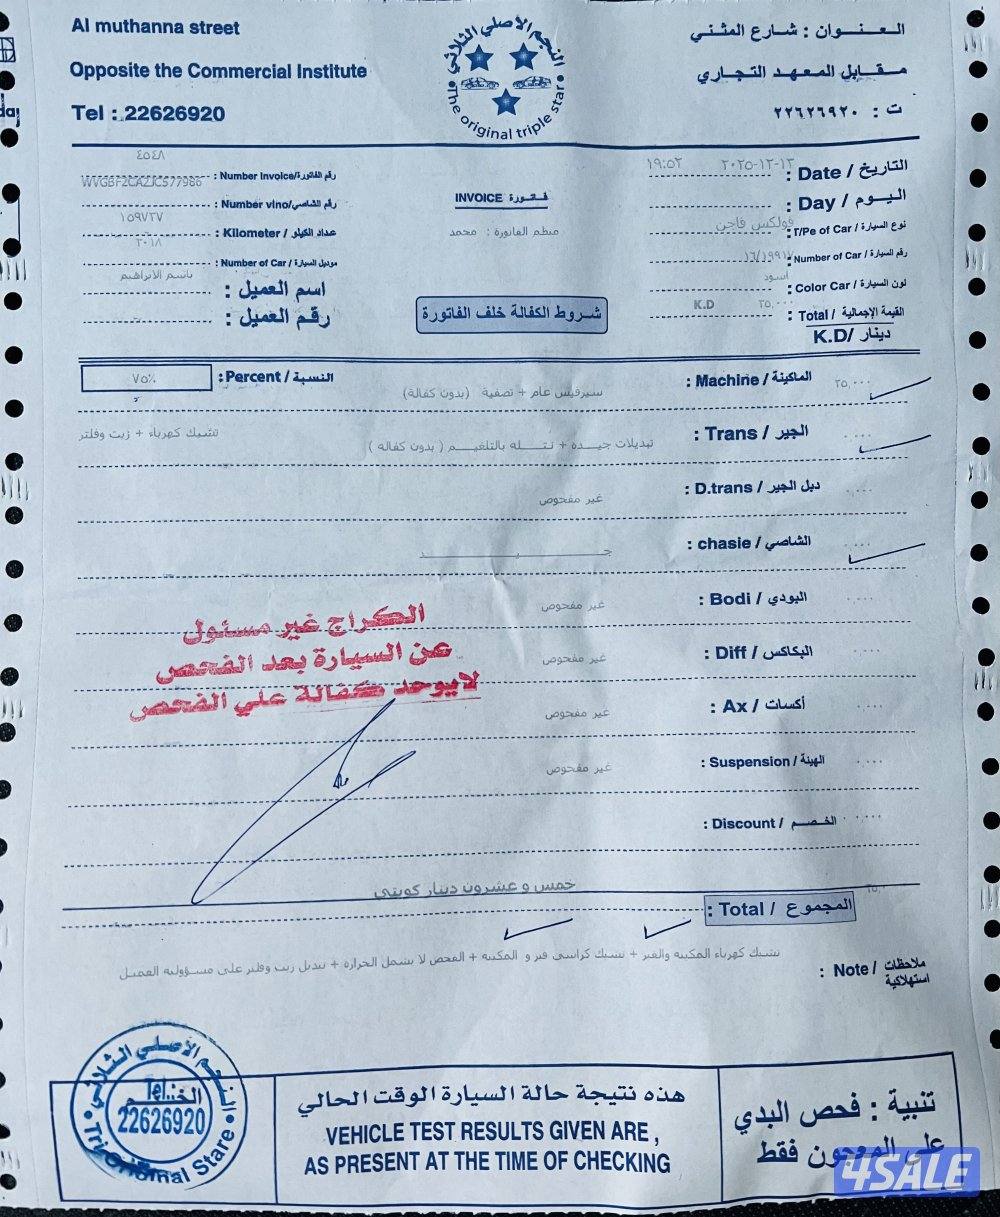 Al muthanna street
Opposite the Commercial Institute
Tel : 22626920
النجم الأصلي الثلاثي
the original triple star
العـنـــوان : شـارع المثنـي
مـقـابل المعهـد التجـاري
ت : ٢٢٦٢٦٩٢٠
٤٥٤٨
رقم الفاتورة/Number Invoice :
WVGBF2CAZJC577986
رقم الشاصي/Number vino :
١٥٩٧٢٧
عداد الكيلو / Kilometer :
٢٠١٨
موديل السيارة / Number of Car :
باسم الابراهيم
اسم العميل :
رقـم العميل :
فـاتـورة INVOICE
منظم الفاتورة : محمد
شـروط الكفالة خلف الفاتورة
التاريخ / Date : ٢٠٢٥-١٢-١٣ ١٩:٥٢
اليـوم / Day :
نوع السيارة / T/Pe of Car : فولكس فاجن
رقم السيارة / Number of Car :
لون السيارة / Color Car : اسود
القيمة الإجمالية / Total : ٢٥,٠٠٠ K.D
دينار /K.D
النسبة / Percent : ٧٥٪
الماكينة / Machine : ٢٥,٠٠٠
سيرفيس عام + تصفية (بدون كفالة)
الجير / Trans : ٠,٠٠٠
تبديلات جيـده + نتـــله بالتلغيـــم ( بدون كفاله )
تشيك كهرباء + زيت وفلتر
دبل الجير / D.trans : ٠,٠٠٠
غير مفحوص
الشاصي / chasie : ٠,٠٠٠
جـــــيـــــد
البودي / Bodi : ٠,٠٠٠
غير مفحوص
البكاكس / Diff : ٠,٠٠٠
غير مفحوص
أكسات / Ax : ٠,٠٠٠
غير مفحوص
الهيئة / Suspension : ٠,٠٠٠
غير مفحوص
الكراج غير مسئول
عن السيارة بعد الفحص
لايوجد كفالة علي الفحص
الخـصـــم / Discount : ٠,٠٠٠
خمس و عشرون دينار كويتي
المجموع / Total :
ملاحظات / Note :
استهلاكية
تشيك كهرباء المكينه والقير + تشيك كراسي قير و المكينه + الفحص لا يشمل الحرارة + تبديل زيت وفلتر على مسؤولية العميل
النجم الأصلي الثلاثي
Tel.:
22626920
Tri Original Stare
هذه نتيجة حالة السيارة الوقت الحالي
VEHICLE TEST RESULTS GIVEN ARE ,
AS PRESENT AT THE TIME OF CHECKING
تنبية : فحص البدي
على المعجون فقط
4SALE